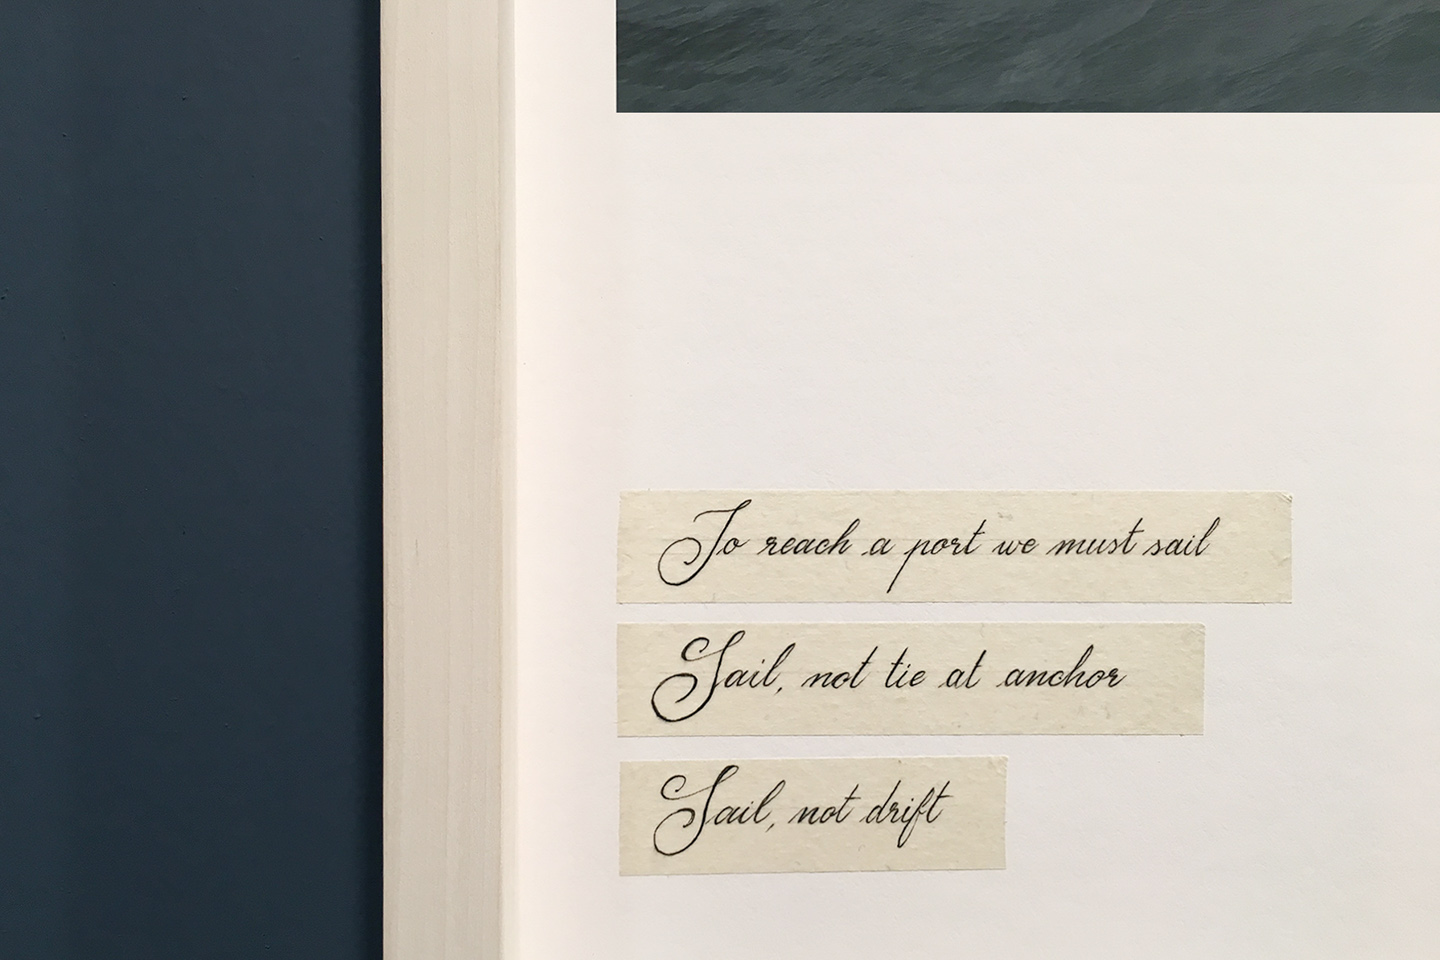 To reach a port we must sail
Sail, not tie at anchor
Sail, not drift